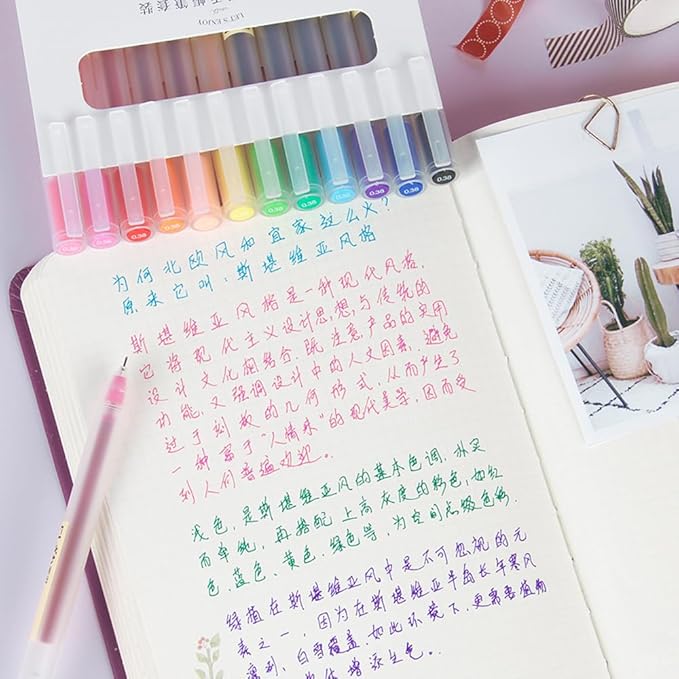 LET'S ENJOY
0.38 0.38 0.38 0.38 0.38 0.38 0.38 0.38 0.38 0.38
为何北欧风和宜家这么火?
原来它叫:斯堪维亚风格
斯堪维亚风格是一种现代风格,
它将现代主义设计思想与传统的
设计文化相结合.既注意产品的实用
功能,又强调设计中的人文因素,避免
过于刻板的几何形式,从而产生了
一种富于"人情味"的现代美学,因而受
到人们普遍欢迎。
浅色,是斯堪维亚风的基本色调,朴实
而单纯,再搭配上高灰度的彩色,如红
色、蓝色、黄色、绿色等,为空间点缀色彩.
绿植在斯堪维亚风中是不可忽视的元
素之一,因为在斯堪维亚半岛长年寒风
凛冽、白雪覆盖.如此环境下,更需要植物
增添生色。